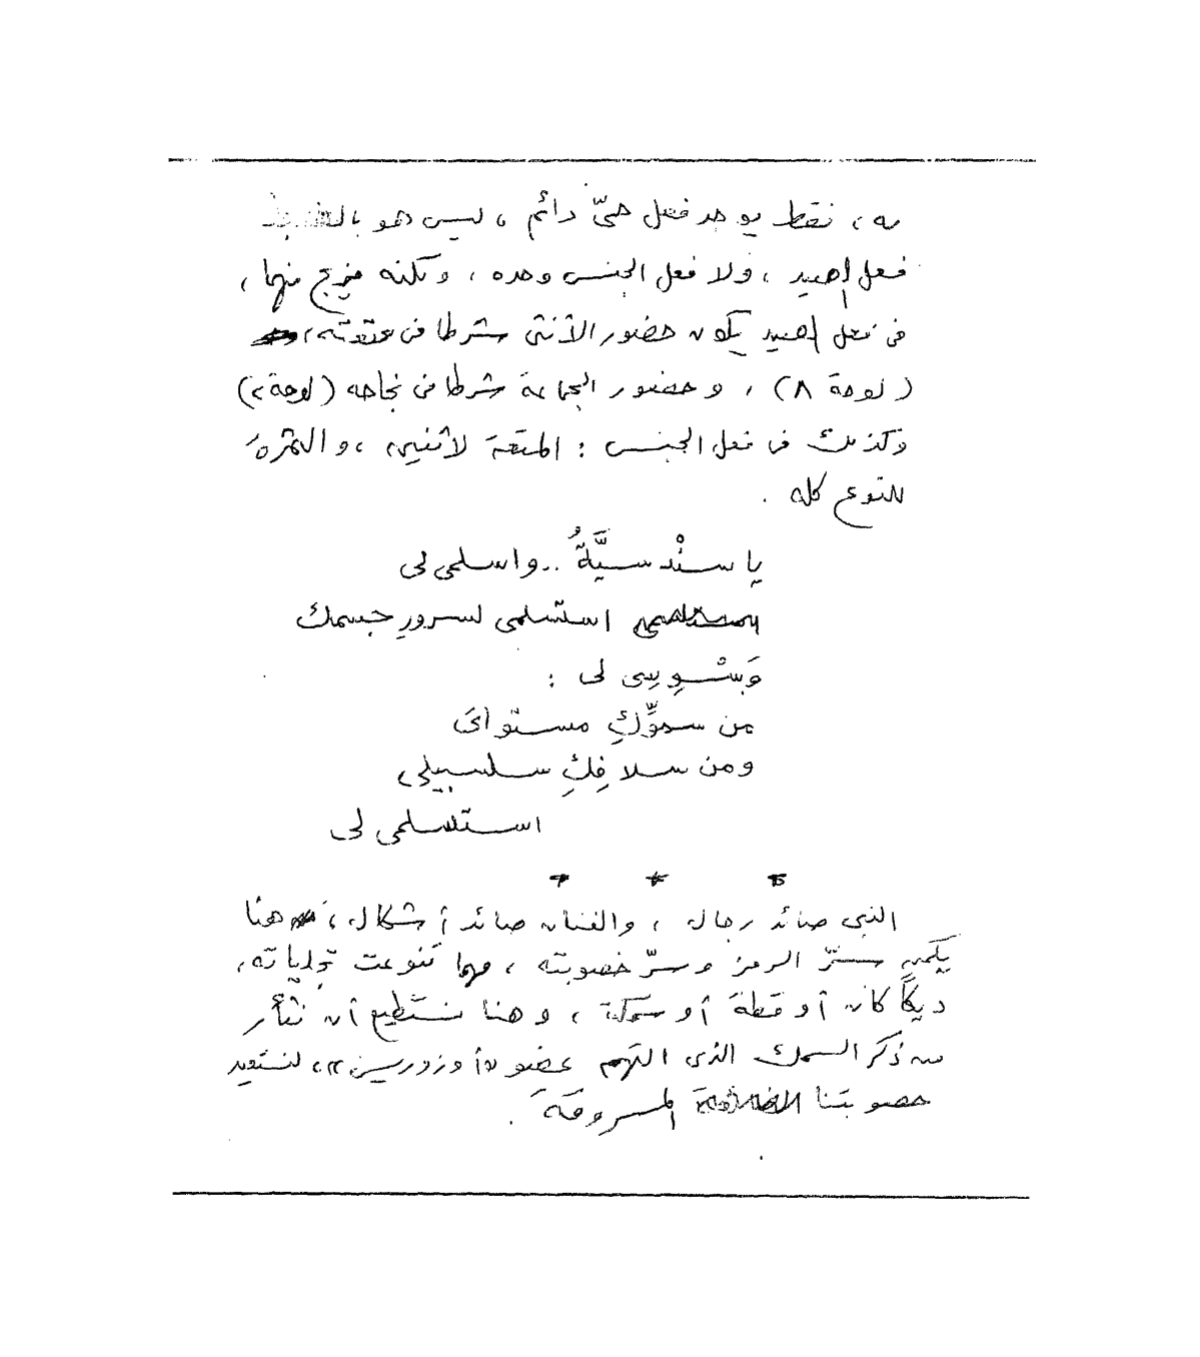 به ، فقط يوجد فعل حىّ دائم ، ليس هو بالضبط
فعل الصيد ، ولا فعل الجنس وحده ، ولكنه مزيج منهما ،
فى فعل الصيد يكون حضور الأنثى شرطا فى
(لوحة ٨) ، وحضور الجماعة شرطا فى نجاحه (لوحة ٢)
وكذلك فى فعل الجنس : المتعة لاثنين ، والثمرة
للنوع كله .
يا سنْدسيَّةُ .. واسلمى لى
استسلمى لسرورِ جسمك
وَسْوِسِى لى :
من سموِّكِ مستواىَ
ومن سلافِكِ سلسبيلى
استسلمى لى
* * *
النبى صائد رجال ، والفنان صائد أشكال ، هنا
يكمن سرّ الرمز وسرّ خصوبته ، مهما تنوعت تجلياته ،
ديكاً كان أو قطة أو سمكة ، وهنا نستطيع أن نثأر
من ذكر السمك الذى التهم عضو «أوزوريس» ، لنستعيد
خصوبتنا المسروقة .